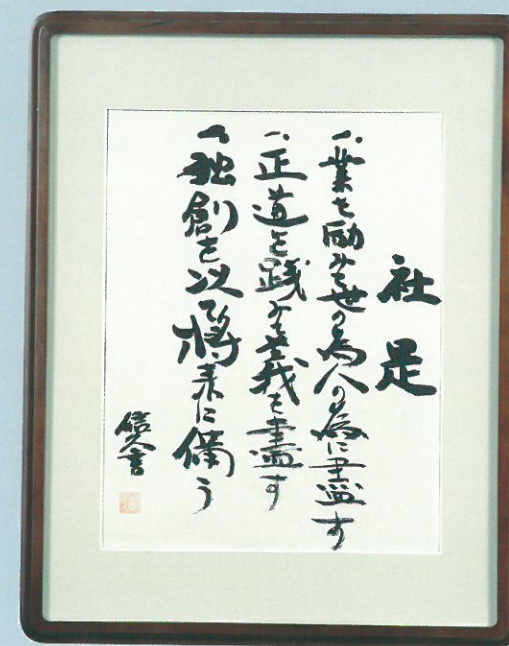 社是
一、業を励み世の為人の為に盡す
一、正道を践み善義を盡す
一、独創を以て将来に備う
信久書